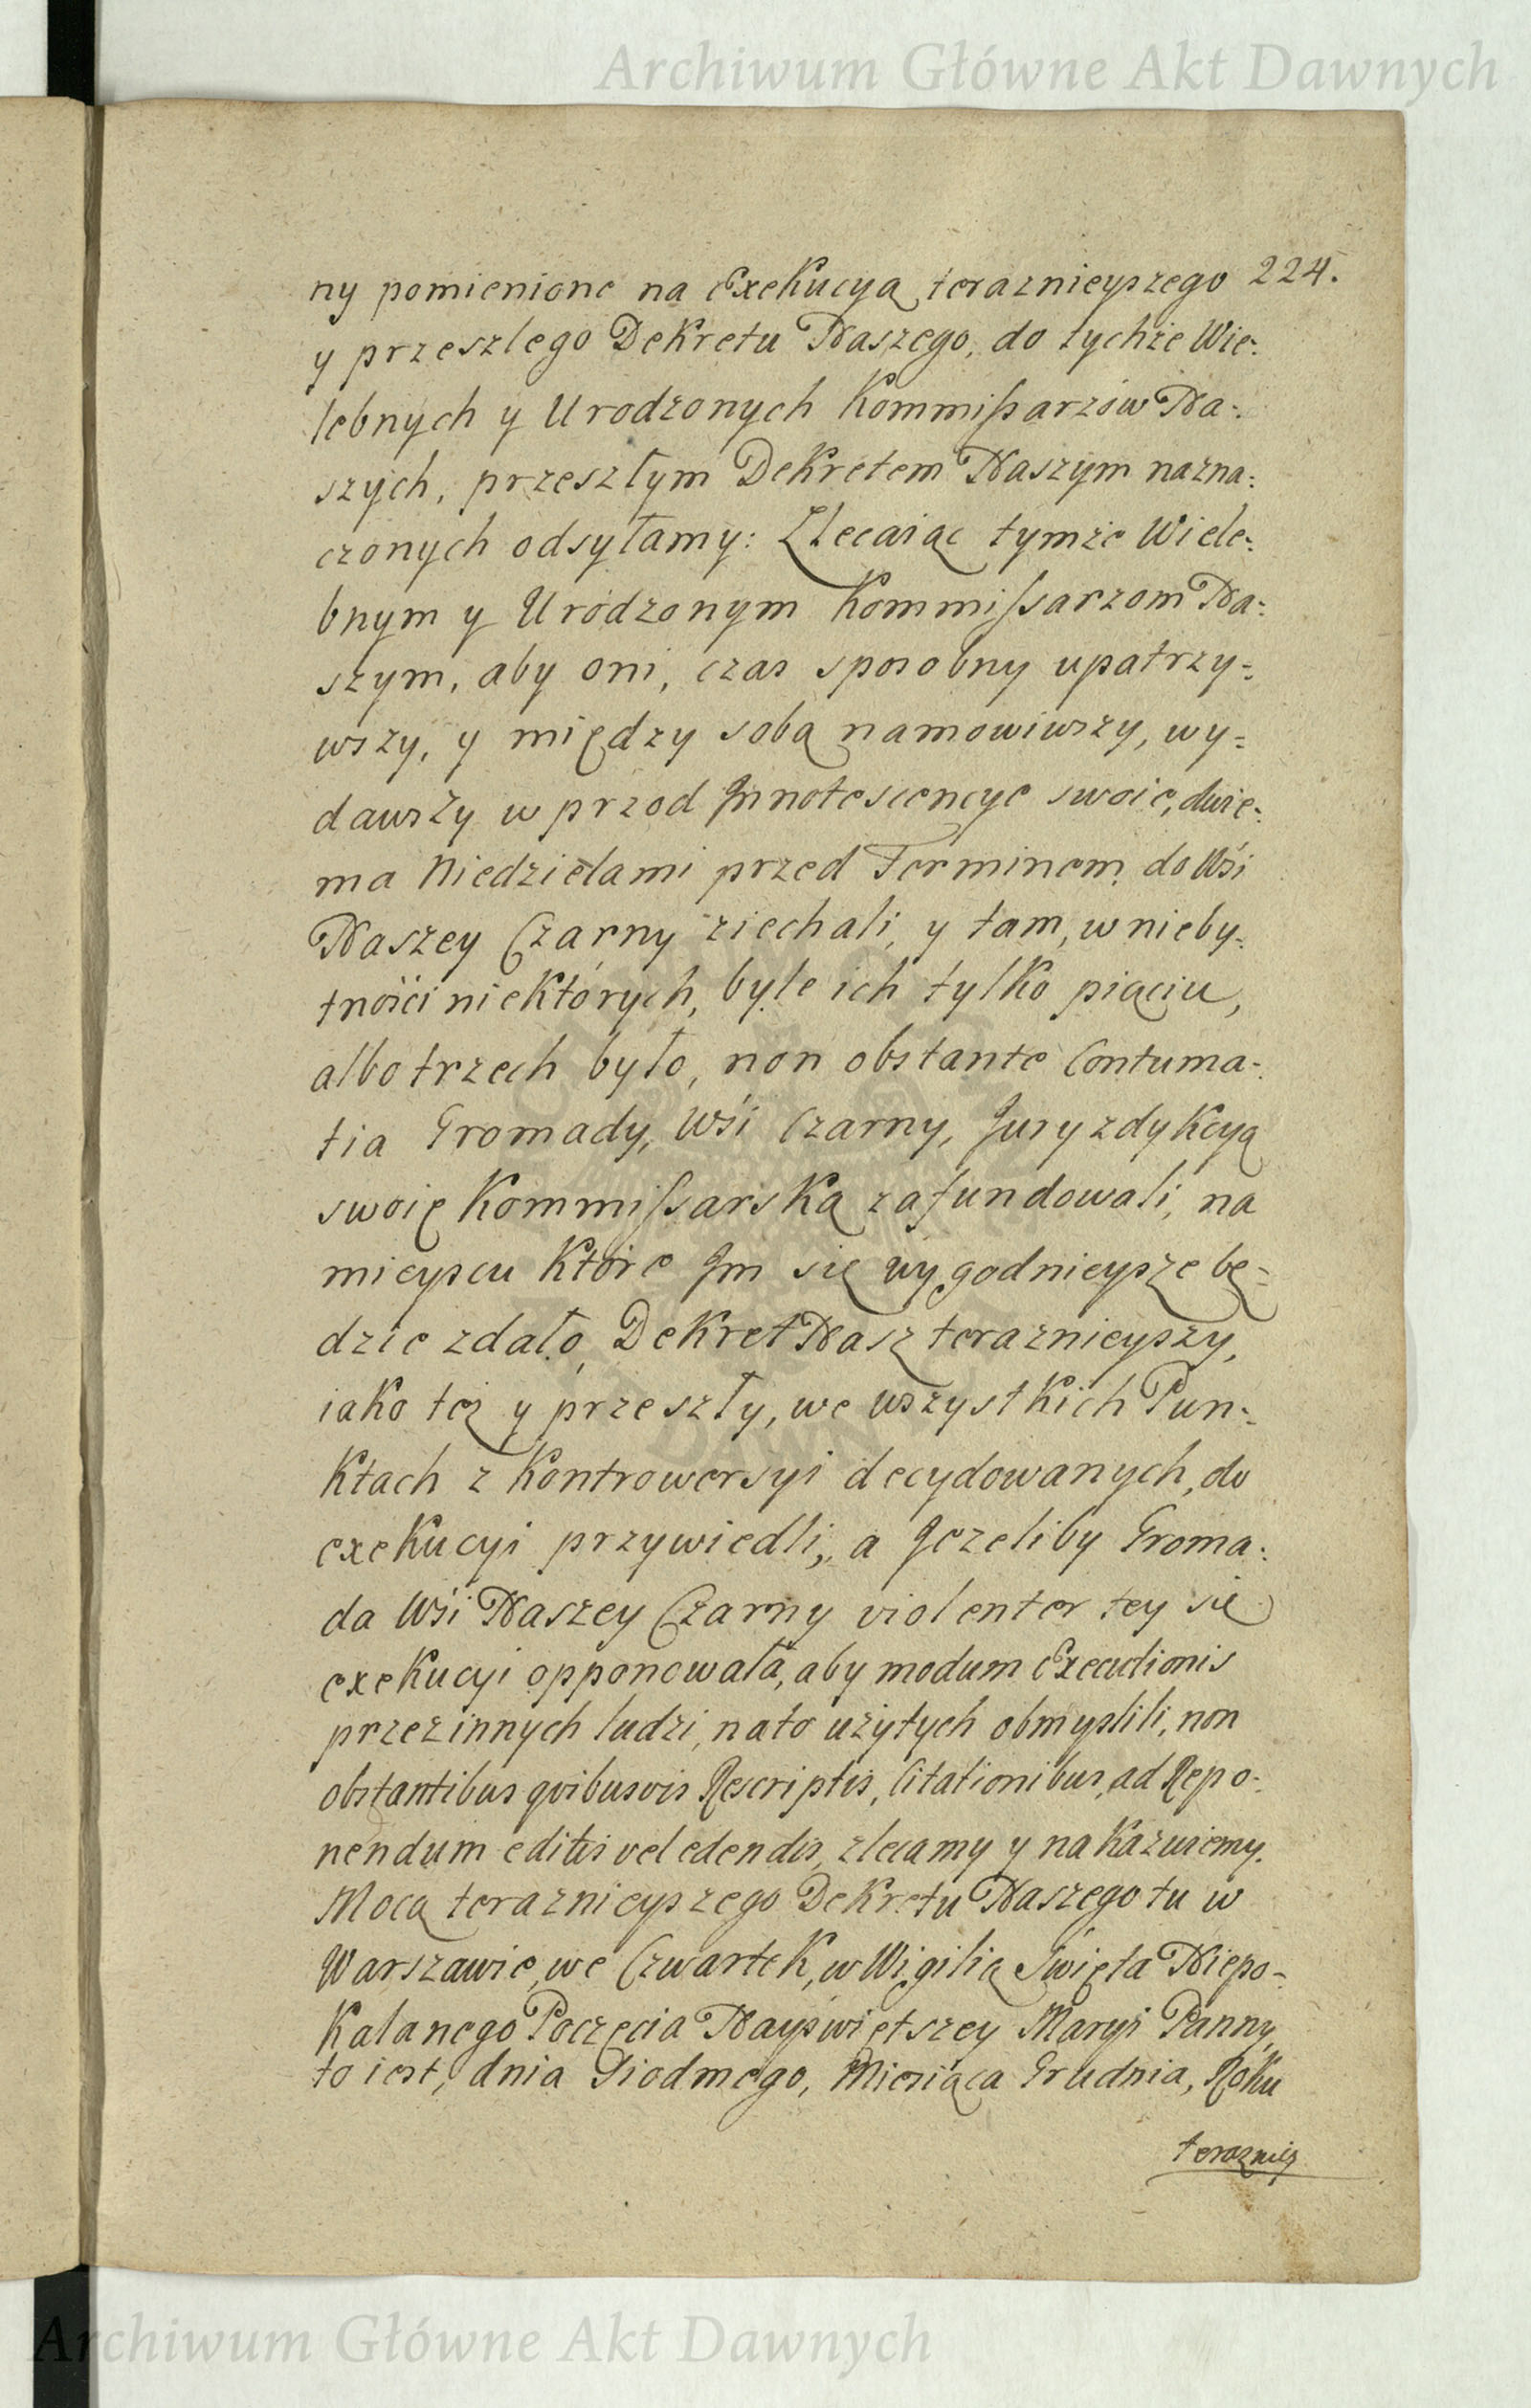 Archiwum Główne Akt Dawnych
224.
ny pomienione na Exekucyą teraznieyszego
y przeszlego Dekretu Naszego, do tychże Wie-
lebnych y Urodzonych Kommissarzów Na-
szych, przeszłym Dekretem Naszym nazna-
czonych odsyłamy: Zlecaiąc tymże Wiele-
bnym y Urodzonym Kommissarzom Na-
szym, aby oni, czas sposobny upatrzy-
wszy, y między sobą namowiwszy, wy-
dawszy w przod Innotescencye swoie, dwie-
ma Niedzielami przed Terminem, do Wśi
Naszey Czarny ziechali, y tam, w nieby-
tności niektórych, byle ich tylko piąciu,
albo trzech było, non obstante Contuma-
tia Gromady, Wśi Czarny, Juryzdykcyą
swoię Kommissarską zafundowali, na
mieyscu które Im się wygodnieysze bę-
dzie zdało, Dekret Nasz teraznieyszy,
iako też y przeszły, we wszystkich Pun-
ktach z Kontrowersyi decydowanych, do
exekucyi przywiedli, a Jezeliby Groma-
da Wśi Naszey Czarny violenter tey się
exekucyi opponowała, aby modum Executionis
przez innych ludzi, na to użytych obmyslili, non
obstantibus qvibusvis Rescriptis, Citationibus, ad Repo-
nendum editis vel edendis, zlecamy y nakazuiemy.
Mocą teraznieyszego Dekretu Naszego tu w
Warszawie, we Czwartek, w Wigilią Święta Niepo-
kalanego Poczęcia Nayświętszey Maryi Panny,
to iest, dnia Siodmego, Miesiąca Grudnia, Roku
teraznieẏ
Archiwum Główne Akt Dawnych